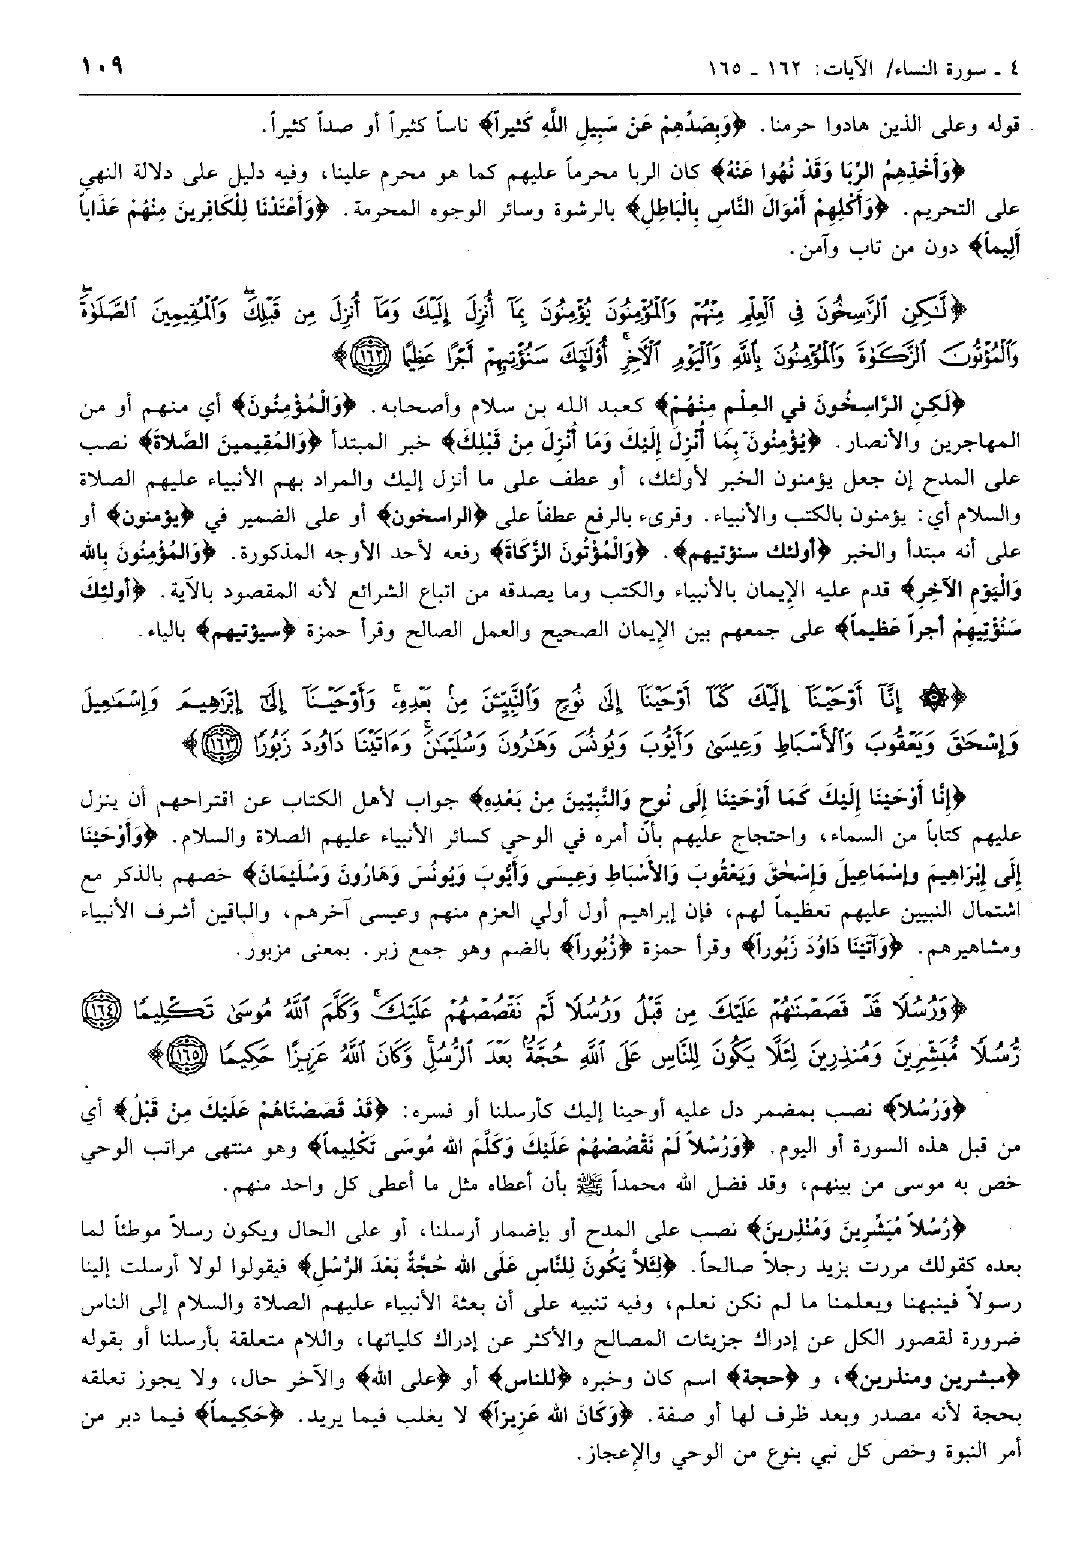 ٤ ـ سورة النساء/ الآيات: ١٦٢ ـ ١٦٥ ١٠٩
قوله وعلى الذين هادوا حرمنا. ﴿وَبِصَدِّهِمْ عَنْ سَبِيلِ اللَّهِ كَثِيراً﴾ ناساً كثيراً أو صداً كثيراً.
﴿وَأَخْذِهِمُ الرِّبَا وَقَدْ نُهُوا عَنْهُ﴾ كان الربا محرماً عليهم كما هو محرم علينا، وفيه دليل على دلالة النهي
على التحريم. ﴿وَأَكْلِهِمْ أَمْوَالَ النَّاسِ بِالْبَاطِلِ﴾ بالرشوة وسائر الوجوه المحرمة. ﴿وَأَعْتَدْنَا لِلْكَافِرِينَ مِنْهُمْ عَذَاباً
أَلِيماً﴾ دون من تاب وآمن.
﴿لَّٰكِنِ ٱلرَّٰسِخُونَ فِى ٱلْعِلْمِ مِنْهُمْ وَٱلْمُؤْمِنُونَ يُؤْمِنُونَ بِمَآ أُنزِلَ إِلَيْكَ وَمَآ أُنزِلَ مِن قَبْلِكَ ۚ وَٱلْمُقِيمِينَ ٱلصَّلَوٰةَ ۚ
وَٱلْمُؤْتُونَ ٱلزَّكَوٰةَ وَٱلْمُؤْمِنُونَ بِٱللَّهِ وَٱلْيَوْمِ ٱلْآخِرِ ۚ أُو۟لَٰٓئِكَ سَنُؤْتِيهِمْ أَجْرًا عَظِيمًا ﴿١٦٢﴾﴾
﴿لَكِنِ الرَّاسِخُونَ في العِلْمِ مِنْهُمْ﴾ كعبد الله بن سلام وأصحابه. ﴿وَالْمُؤْمِنُونَ﴾ أي منهم أو من
المهاجرين والأنصار. ﴿يُؤْمِنُونَ بِمَا أُنْزِلَ إِلَيْكَ وَمَا أُنْزِلَ مِنْ قَبْلِكَ﴾ خبر المبتدأ ﴿وَالمُقِيمينَ الصَّلاَةَ﴾ نصب
على المدح إن جعل يؤمنون الخبر لأولئك، أو عطف على ما أنزل إليك والمراد بهم الأنبياء عليهم الصلاة
والسلام أي: يؤمنون بالكتب والأنبياء. وقرىء بالرفع عطفاً على ﴿الراسخون﴾ أو على الضمير في ﴿يؤمنون﴾ أو
على أنه مبتدأ والخبر ﴿أولئك سنؤتيهم﴾. ﴿وَالْمُؤْتُونَ الزَّكَاةَ﴾ رفعه لأحد الأوجه المذكورة. ﴿وَالمُؤْمِنُونَ بِالله
وَالْيَوْمِ الآخِرِ﴾ قدم عليه الإيمان بالأنبياء والكتب وما يصدقه من اتباع الشرائع لأنه المقصود بالآية. ﴿أُولئِكَ
سَنُؤْتِيهِمْ أَجراً عَظيماً﴾ على جمعهم بين الإيمان الصحيح والعمل الصالح وقرأ حمزة ﴿سيؤتيهم﴾ بالياء.
﴿۞ إِنَّآ أَوْحَيْنَآ إِلَيْكَ كَمَآ أَوْحَيْنَآ إِلَىٰ نُوحٍ وَٱلنَّبِيِّـۧنَ مِنۢ بَعْدِهِۦ ۚ وَأَوْحَيْنَآ إِلَىٰٓ إِبْرَٰهِيمَ وَإِسْمَٰعِيلَ
وَإِسْحَٰقَ وَيَعْقُوبَ وَٱلْأَسْبَاطِ وَعِيسَىٰ وَأَيُّوبَ وَيُونُسَ وَهَٰرُونَ وَسُلَيْمَٰنَ ۚ وَءَاتَيْنَا دَاوُۥدَ زَبُورًا ﴿١٦٣﴾﴾
﴿إِنَّا أَوْحَيْنَا إِلَيْكَ كَمَا أَوْحَيْنَا إِلَى نُوحٍ وَالنَّبِيِّينَ مِنْ بَعْدِهِ﴾ جواب لأهل الكتاب عن اقتراحهم أن ينزل
عليهم كتاباً من السماء، واحتجاج عليهم بأن أمره في الوحي كسائر الأنبياء عليهم الصلاة والسلام. ﴿وَأَوْحَيْنَا
إِلَى إِبْرَاهِيمَ وإِسْمَاعِيلَ وَإِسْحٰقَ وَيَعْقُوبَ وَالأَسْبَاطِ وَعِيسَى وَأَيُّوبَ وَيُونُسَ وَهَارُونَ وَسُلَيْمَانَ﴾ خصهم بالذكر مع
اشتمال النبيين عليهم تعظيماً لهم، فإن إبراهيم أول أولي العزم منهم وعيسى آخرهم، والباقين أشرف الأنبياء
ومشاهيرهم. ﴿وَآتَيْنَا دَاوُدَ زَبُوراً﴾ وقرأ حمزة ﴿زُبُوراً﴾ بالضم وهو جمع زبر. بمعنى مزبور.
﴿وَرُسُلًا قَدْ قَصَصْنَٰهُمْ عَلَيْكَ مِن قَبْلُ وَرُسُلًا لَّمْ نَقْصُصْهُمْ عَلَيْكَ ۚ وَكَلَّمَ ٱللَّهُ مُوسَىٰ تَكْلِيمًا ﴿١٦٤﴾
رُّسُلًا مُّبَشِّرِينَ وَمُنذِرِينَ لِئَلَّا يَكُونَ لِلنَّاسِ عَلَى ٱللَّهِ حُجَّةٌۢ بَعْدَ ٱلرُّسُلِ ۚ وَكَانَ ٱللَّهُ عَزِيزًا حَكِيمًا ﴿١٦٥﴾﴾
﴿وَرُسُلاً﴾ نصب بمضمر دل عليه أوحينا إليك كأرسلنا أو فسره: ﴿قَدْ قَصَصْنَاهُمْ عَلَيْكَ مِنْ قَبْلُ﴾ أي
من قبل هذه السورة أو اليوم. ﴿وَرُسُلاً لَمْ نَقْصُصْهُمْ عَلَيْكَ وَكَلَّمَ الله مُوسَى تَكْلِيماً﴾ وهو منتهى مراتب الوحي
خص به موسى من بينهم، وقد فضل الله محمداً ﷺ بأن أعطاه مثل ما أعطى كل واحد منهم.
﴿رُسُلاً مُبَشِّرِينَ وَمُنْذِرِينَ﴾ نصب على المدح أو بإضمار أرسلنا، أو على الحال ويكون رسلاً موطئاً لما
بعده كقولك مررت بزيد رجلاً صالحاً. ﴿لِئَلاَّ يَكُونَ لِلنَّاسِ عَلَى الله حُجَّةٌ بَعْدَ الرُّسُلِ﴾ فيقولوا لولا أرسلت إلينا
رسولاً فينبهنا ويعلمنا ما لم نكن نعلم، وفيه تنبيه على أن بعثة الأنبياء عليهم الصلاة والسلام إلى الناس
ضرورة لقصور الكل عن إدراك جزيئات المصالح والأكثر عن إدراك كلياتها، واللام متعلقة بأرسلنا أو بقوله
﴿مبشرين ومنذرين﴾، و ﴿حجة﴾ اسم كان وخبره ﴿للناس﴾ أو ﴿على الله﴾ والآخر حال، ولا يجوز تعلقه
بحجة لأنه مصدر وبعد ظرف لها أو صفة. ﴿وَكَانَ الله عَزِيزاً﴾ لا يغلب فيما يريد. ﴿حَكِيماً﴾ فيما دبر من
أمر النبوة وخص كل نبي بنوع من الوحي والإعجاز.